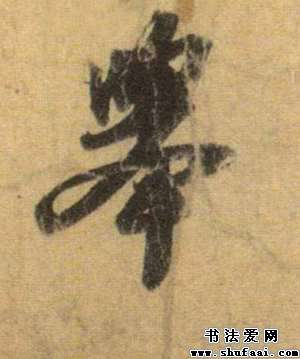 举
书法爱网
www.shufaai.com